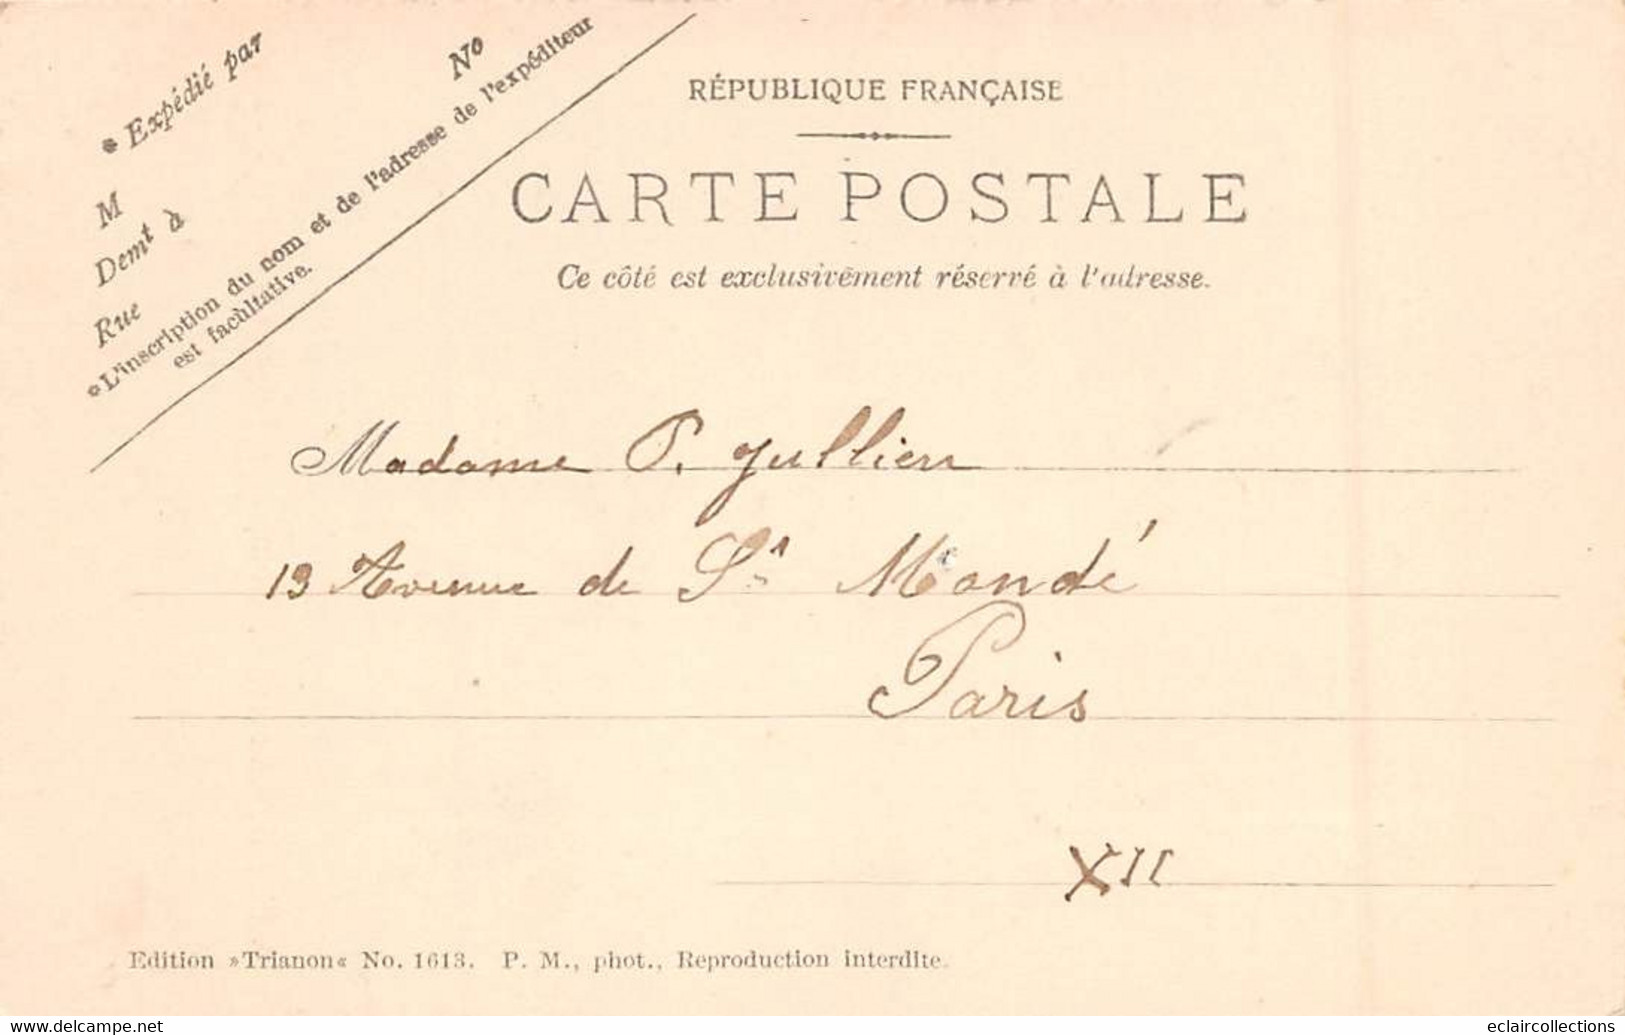 * Expédié par
No
M
Demt à
Rue
*L'inscription du nom et de l'adresse de l'expéditeur
est facultative.
RÉPUBLIQUE FRANÇAISE
CARTE POSTALE
Ce côté est exclusivement réservé à l'adresse.
Madame P. Jullien
13 Avenue de St Mandé
Paris
XII
Edition »Trianon« No. 1613. P. M., phot., Reproduction interdite.
www.delcampe.net
eclaircollections